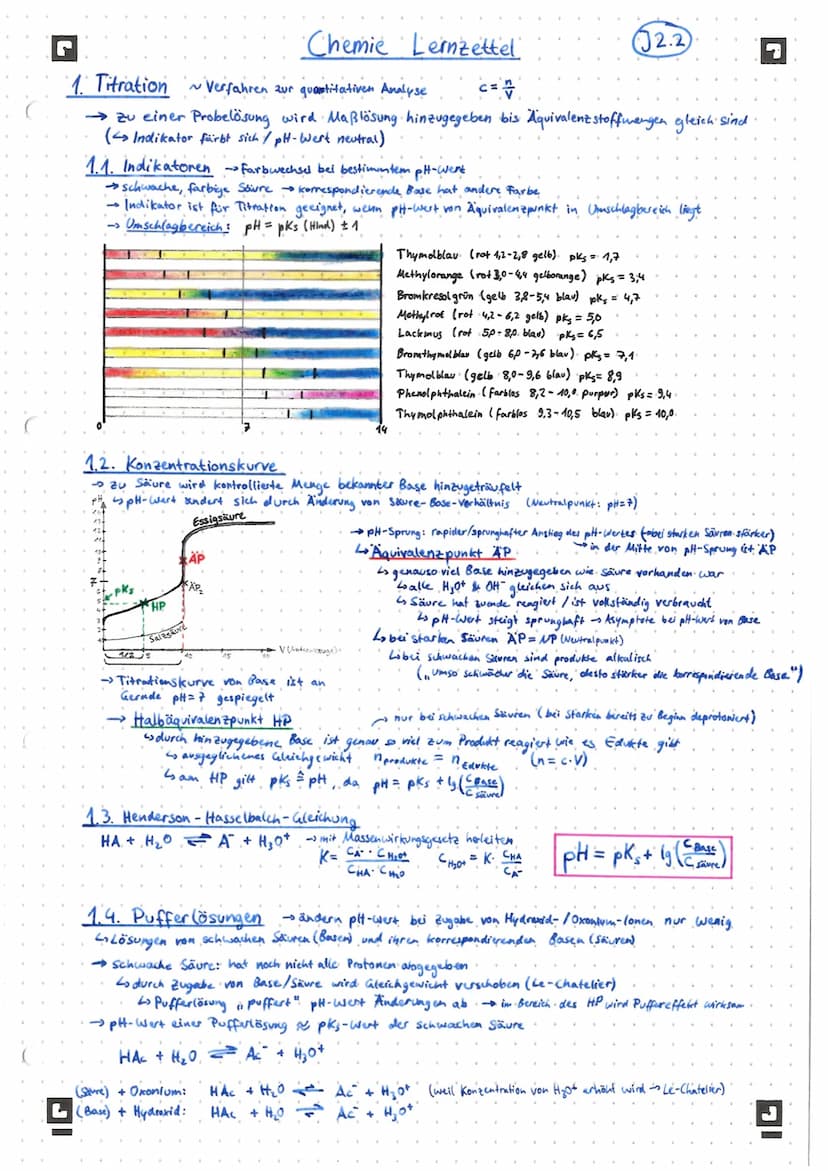 Chemie Lernzettel
J2.2
1. Titration ~ Verfahren zur quantitativen Analyse c = n/V
→ zu einer Probelösung wird Maßlösung hinzugegeben bis Äquivalenzstoffmengen gleich sind
(↳ Indikator färbt sich / pH-Wert neutral)
1.1. Indikatoren → Farbwechsel bei bestimmtem pH-Wert
→ schwache, farbige Säure → korrespondierende Base hat andere Farbe
→ Indikator ist für Titration geeignet, wenn pH-Wert von Äquivalenzpunkt in Umschlagbereich liegt
→ Umschlagbereich: pH = pKs (HInd) ± 1
Thymolblau (rot 1,2-2,8 gelb) pKs = 1,7
Methylorange (rot 3,0-4,4 gelborange) pKs = 3,4
Bromkresolgrün (gelb 3,8-5,4 blau) pKs = 4,7
Methylrot (rot 4,2-6,2 gelb) pKs = 5,0
Lackmus (rot 5,0-8,0 blau) pKs = 6,5
Bromthymolblau (gelb 6,0-7,6 blau) pKs = 7,1
Thymolblau (gelb 8,0-9,6 blau) pKs = 8,9
Phenolphthalein (farblos 8,2-10,0 purpur) pKs = 9,4
Thymolphthalein (farblos 9,3-10,5 blau) pKs = 10,0
0 7 14
1.2. Konzentrationskurve
→ zu Säure wird kontrollierte Menge bekannter Base hinzugeträufelt
↳ pH-Wert ändert sich durch Änderung von Säure-Base-Verhältnis (Neutralpunkt: pH=7)
pH
Essigsäure
ÄP
ÄP₂
7
pKs
HP
Salzsäure
1/2
5 10 15
→ pH-Sprung: rapider/sprunghafter Anstieg des pH-Wertes (bei starken Säuren stärker)
→ in der Mitte von pH-Sprung ist ÄP
↳ Äquivalenzpunkt ÄP
↳ genauso viel Base hinzugegeben wie Säure vorhanden war
↳ alle H₃O⁺ & OH⁻ gleichen sich aus
↳ Säure hat zuende reagiert / ist vollständig verbraucht
↳ pH-Wert steigt sprunghaft → Asymptote bei pH-Wert von Base
↳ bei starken Säuren ÄP = NP (Neutralpunkt)
↳ bei schwachen Säuren sind produkte alkalisch
(„Umso schwächer die Säure, desto stärker die korrespondierende Base")
→ Titrationskurve von Base ist an
Gerade pH=7 gespiegelt
→ Halbäquivalenzpunkt HP → nur bei schwachen Säuren (bei starken bereits zu Beginn deprotoniert)
↳ durch hinzugegebene Base ist genau so viel zum Produkt reagiert wie es Edukte gibt
↳ ausgeglichenes Gleichgewicht n Produkte = n Edukte (n = c·V)
↳ am HP gilt pKs ≙ pH, da pH = pKs + lg(c Base / c Säure)
1.3. Henderson-Hasselbalch-Gleichung
HA + H₂O ⇌ A⁻ + H₃O⁺ → mit Massenwirkungsgesetz herleiten
K = (c A⁻ · c H₃O⁺) / (c HA · c H₂O) c H₃O⁺ = K · c HA / c A⁻
pH = pKs + lg(c Base / c Säure)
1.4. Pufferlösungen → ändern pH-Wert bei Zugabe von Hydroxid-/Oxonium-Ionen nur wenig
↳ Lösungen von schwachen Säuren (Basen) und ihren korrespondierenden Basen (Säuren)
→ schwache Säure: hat noch nicht alle Protonen abgegeben
↳ durch Zugabe von Base/Säure wird Gleichgewicht verschoben (Le-Chatelier)
↳ Pufferlösung „puffert" pH-Wert Änderungen ab → im Bereich des HP wird Puffereffekt wirksam
→ pH-Wert einer Pufferlösung ≈ pKs-Wert der schwachen Säure
HAc + H₂O ⇌ Ac⁻ + H₃O⁺
(Säure) + Oxonium: HAc + H₂O ⇌ Ac⁻ + H₃O⁺ (weil Konzentration von H₃O⁺ erhöht wird → Le-Chatelier)
(Base) + Hydroxid: HAc + H₂O ⇌ Ac⁻ + H₃O⁺